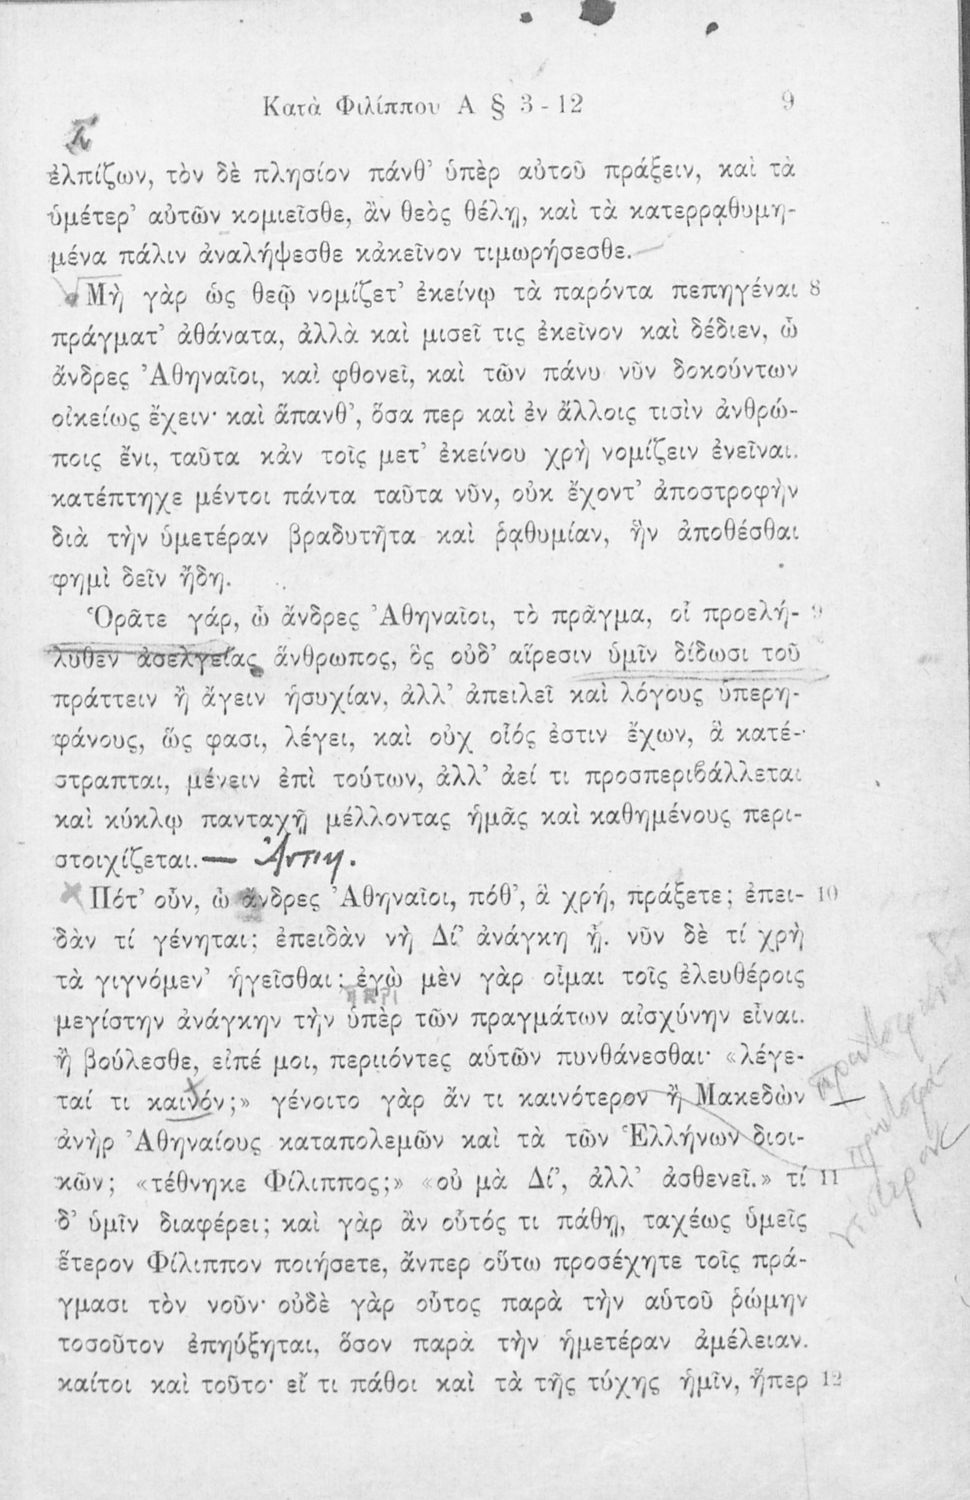 Κατὰ Φιλίππου Α § 3 - 12 9
ἐλπίζων, τὸν δὲ πλησίον πάνθ’ ὑπὲρ αὐτοῦ πράξειν, καὶ τὰ
ὑμέτερ’ αὐτῶν κομιεῖσθε, ἂν θεὸς θέλῃ, καὶ τὰ κατερρᾳθυμη-
μένα πάλιν ἀναλήψεσθε κἀκεῖνον τιμωρήσεσθε.
Μὴ γὰρ ὡς θεῷ νομίζετ’ ἐκείνῳ τὰ παρόντα πεπηγέναι 8
πράγματ’ ἀθάνατα, ἀλλὰ καὶ μισεῖ τις ἐκεῖνον καὶ δέδιεν, ὦ
ἄνδρες Ἀθηναῖοι, καὶ φθονεῖ, καὶ τῶν πάνυ νῦν δοκούντων
οἰκείως ἔχειν· καὶ ἅπανθ’, ὅσα περ καὶ ἐν ἄλλοις τισὶν ἀνθρώ-
ποις ἔνι, ταῦτα κἀν τοῖς μετ’ ἐκείνου χρὴ νομίζειν ἐνεῖναι.
κατέπτηχε μέντοι πάντα ταῦτα νῦν, οὐκ ἔχοντ’ ἀποστροφὴν
διὰ τὴν ὑμετέραν βραδυτῆτα καὶ ῥᾳθυμίαν, ἣν ἀποθέσθαι
φημὶ δεῖν ἤδη.
Ὁρᾶτε γάρ, ὦ ἄνδρες Ἀθηναῖοι, τὸ πρᾶγμα, οἷ προελή- 9
λυθεν ἀσελγείας ἅνθρωπος, ὃς οὐδ’ αἵρεσιν ὑμῖν δίδωσι τοῦ
πράττειν ἢ ἄγειν ἡσυχίαν, ἀλλ’ ἀπειλεῖ καὶ λόγους ὑπερη-
φάνους, ὥς φασι, λέγει, καὶ οὐχ οἷός ἐστιν ἔχων, ἃ κατέ-
στραπται, μένειν ἐπὶ τούτων, ἀλλ’ ἀεί τι προσπεριβάλλεται
καὶ κύκλῳ πανταχῇ μέλλοντας ἡμᾶς καὶ καθημένους περι-
στοιχίζεται.
Πότ’ οὖν, ὦ ἄνδρες Ἀθηναῖοι, πόθ’, ἃ χρή, πράξετε; ἐπει- 10
δὰν τί γένηται; ἐπειδὰν νὴ Δί’ ἀνάγκη ᾖ. νῦν δὲ τί χρὴ
τὰ γιγνόμεν’ ἡγεῖσθαι; ἐγὼ μὲν γὰρ οἶμαι τοῖς ἐλευθέροις
μεγίστην ἀνάγκην τὴν ὑπὲρ τῶν πραγμάτων αἰσχύνην εἶναι.
ἢ βούλεσθε, εἰπέ μοι, περιιόντες αὑτῶν πυνθάνεσθαι· «λέγε-
ταί τι καινόν;» γένοιτο γὰρ ἄν τι καινότερον ἢ Μακεδὼν
ἀνὴρ Ἀθηναίους καταπολεμῶν καὶ τὰ τῶν Ἑλλήνων διοι-
κῶν; «τέθνηκε Φίλιππος;» «οὐ μὰ Δί’, ἀλλ’ ἀσθενεῖ.» τί 11
δ’ ὑμῖν διαφέρει; καὶ γὰρ ἂν οὗτός τι πάθῃ, ταχέως ὑμεῖς
ἕτερον Φίλιππον ποιήσετε, ἄνπερ οὕτω προσέχητε τοῖς πρά-
γμασι τὸν νοῦν· οὐδὲ γὰρ οὗτος παρὰ τὴν αὑτοῦ ῥώμην
τοσοῦτον ἐπηύξηται, ὅσον παρὰ τὴν ἡμετέραν ἀμέλειαν.
καίτοι καὶ τοῦτο· εἴ τι πάθοι καὶ τὰ τῆς τύχης ἡμῖν, ἥπερ 12